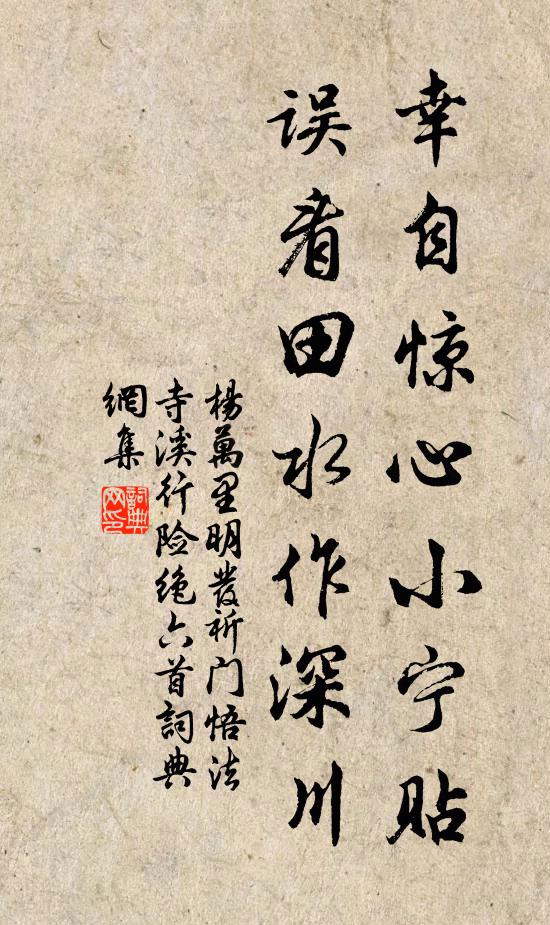 幸自惊心小宁贴
误看田水作深川
楊萬里明發祈门悟法
寺溪行险绝六首詞典
網集
詞典
网印